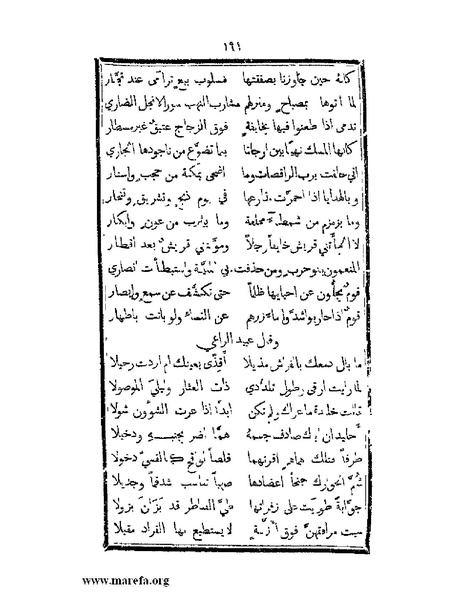 ١٩١
كانه حين جاوزنا بصفقتها مسلوب بيع تراءى عند تجار
لما اتوها بمصباح ومنزلهم سارت اليهم سور الابجل الضاري
تدمى اذا طعنوا فيها بجايفة فوق الزجاج عتيق غير مسطار
كانها المسك نهبا بين ارحلنا مما تضوع من ناجودها الجاري
اني حلفت برب الراقصات وما اضحى بمكة من حجب واستار
وبالهدايا اذا احمرت في يوم ذبح وتشريق وتنحار
وما بزمزم من شمط محلقة وما بيثرب من عون وابكار
قريش خايفا وجلا ومولتني قريش بعد اقتار
المنعمون بنو حرب ومن حدقت بي المنية واستبطأت انصاري
قوم يجلون عن احيائها ظلما حتى تكشف عن سمع وابصار
قوم اذا حاربوا شدوا مآزرهم عن النساء ولو باتت باطهار
وقال عبيد الراعي
ما بال دفك بالفراش مذيلا أقذى بعينك ام اردت رحيلا
لما رأيت ارقي وطول تلددي ذات العشاء وليلي الموصولا
قالت خليدة ما عراك ولم تكن ابدا اذا عرت الشؤون سؤولا
أخليد ان اباك ضاف وساده همان باتا جنبة ودخيلا
طرقا فتلك هماهمي اقريهما قلصا لواقح كالقسي وحولا
شم الحوارك جنحا اعضادها صهبا تناسب شدقما وجديلا
جوابة طويت على زفراتها طي القناطر قد بزلن بزولا
مرافقهن فوق لا يستطيع بها القراد مقيلا
www.marefa.org